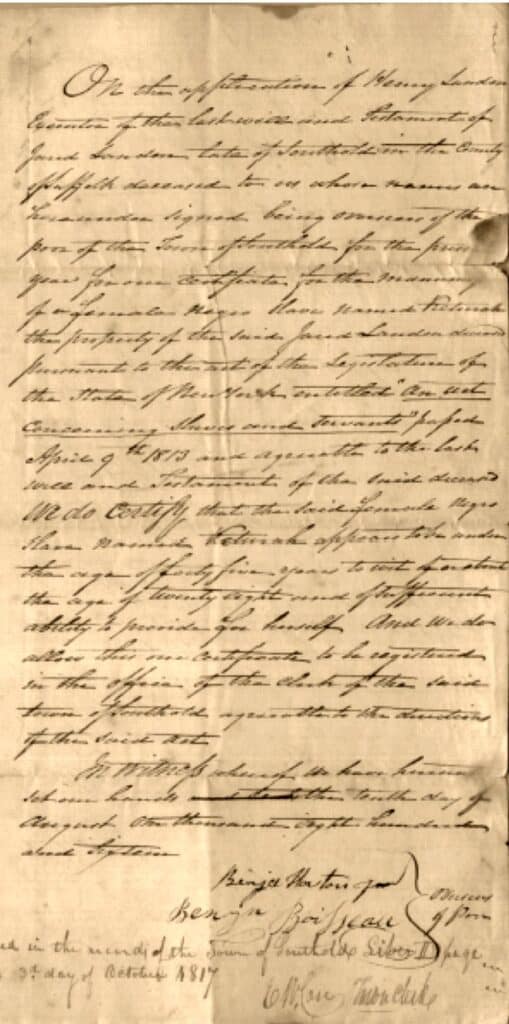 On the application of Henry Landon
Executor of the last will and Testament of
Jared Landon late of Southold in the County
of Suffolk deceased to us whose names are
hereunder signed being overseers of the
poor of the Town of Southold for the present
year for our certificate for the manumis
of a Female Negro Slave named Keturah
the property of the said Jared Landon deceased
pursuant to the act of the Legislature of
the State of New York entitled "An act
concerning Slaves and Servants" passed
April 9th 1813 and agreeable to the last
will and Testament of the said deceased
We do Certify that the said Female Negro
Slave named Keturah appears to be under
the age of forty five years to wit of about
the age of twenty eight and of sufficient
ability to provide for herself And we do
allow this our certificate to be registered
in the office of the clerk of the said
town of Southold agreeable to the directions
of the said Act
In Witness whereof we have hereunto
set our hands the tenth day of
August One thousand eight hundred
and Sixteen
Benja Horton Jun
Overseers
Benjn Boisseau
of Poor
ed in the records of the Town of Southold Liber D page
3d day of October 1817
Town Clerk